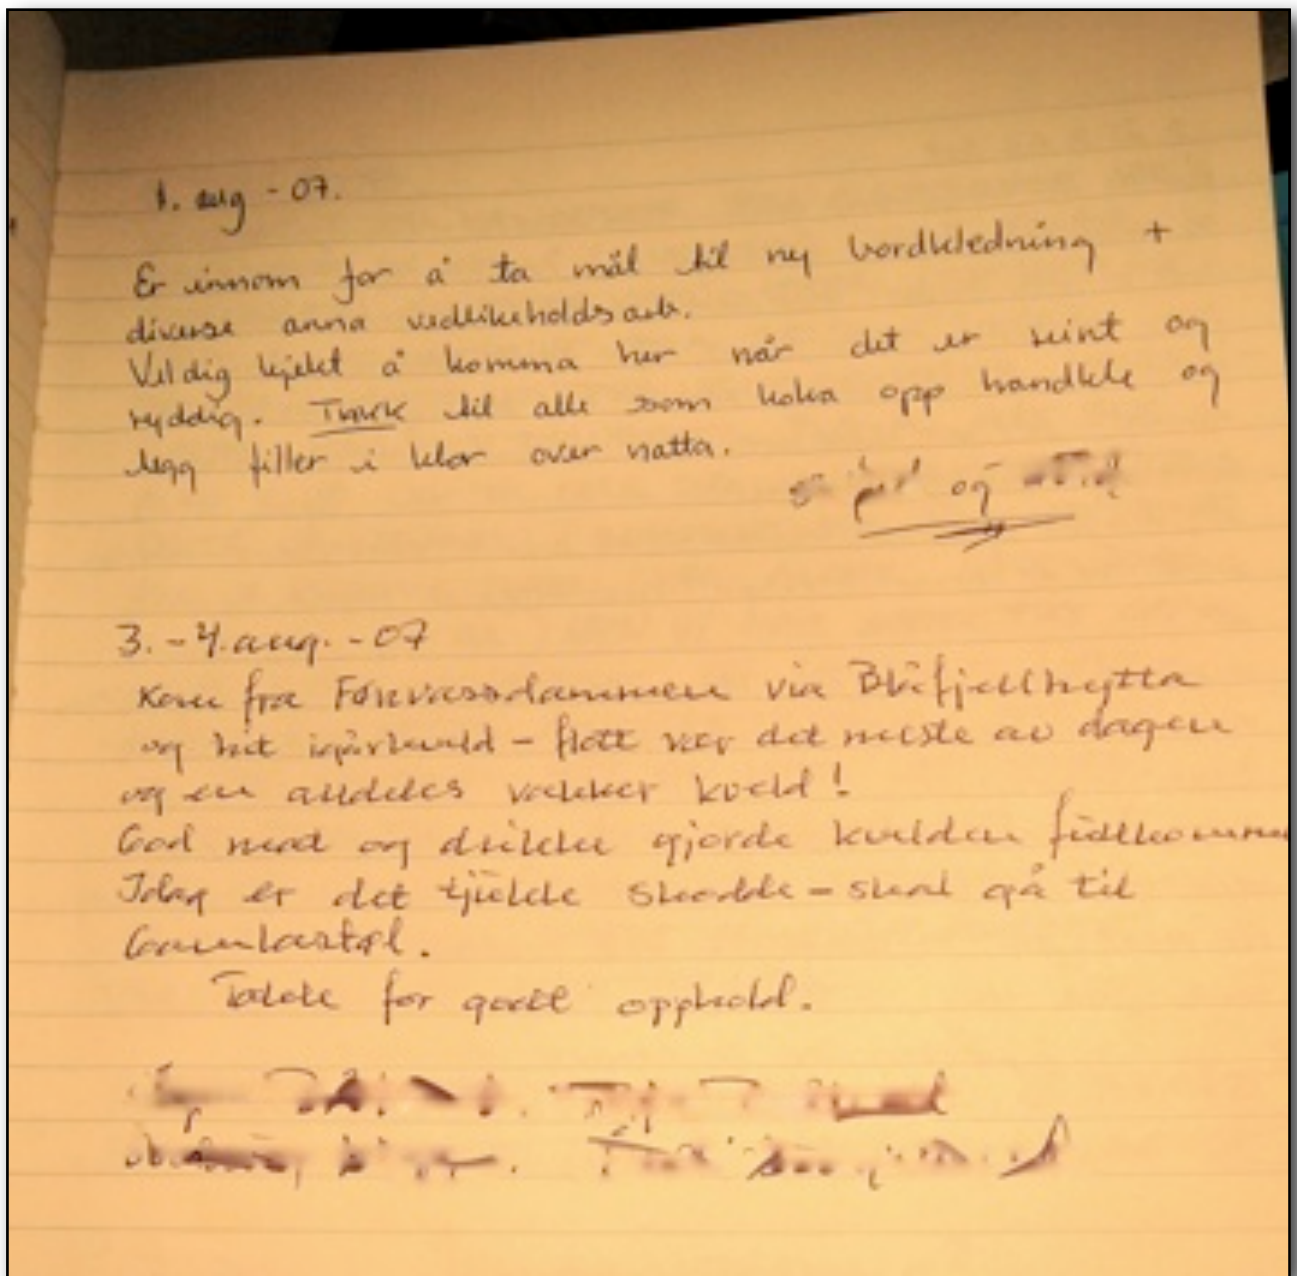 1. aug - 07.
Er innom for å ta mål til ny bordkledning +
diverse anna vedlikeholdsarb.
Veldig kjekt å komma her når det er reint og
ryddig. Takk til alle som koka opp handkle og
legg filler i klor over natta.
og
3.-4. aug. - 07
Kom fra Førevassdammen via Blåfjellhytta
og hit igårkveld - flott vær det meste av dagen
og en aldeles vakker kveld!
God mat og drikke gjorde kvelden fullkommen
Idag er det tjukke skodde - skal gå til
Gaunlastøl.
Takk for godt opphold.